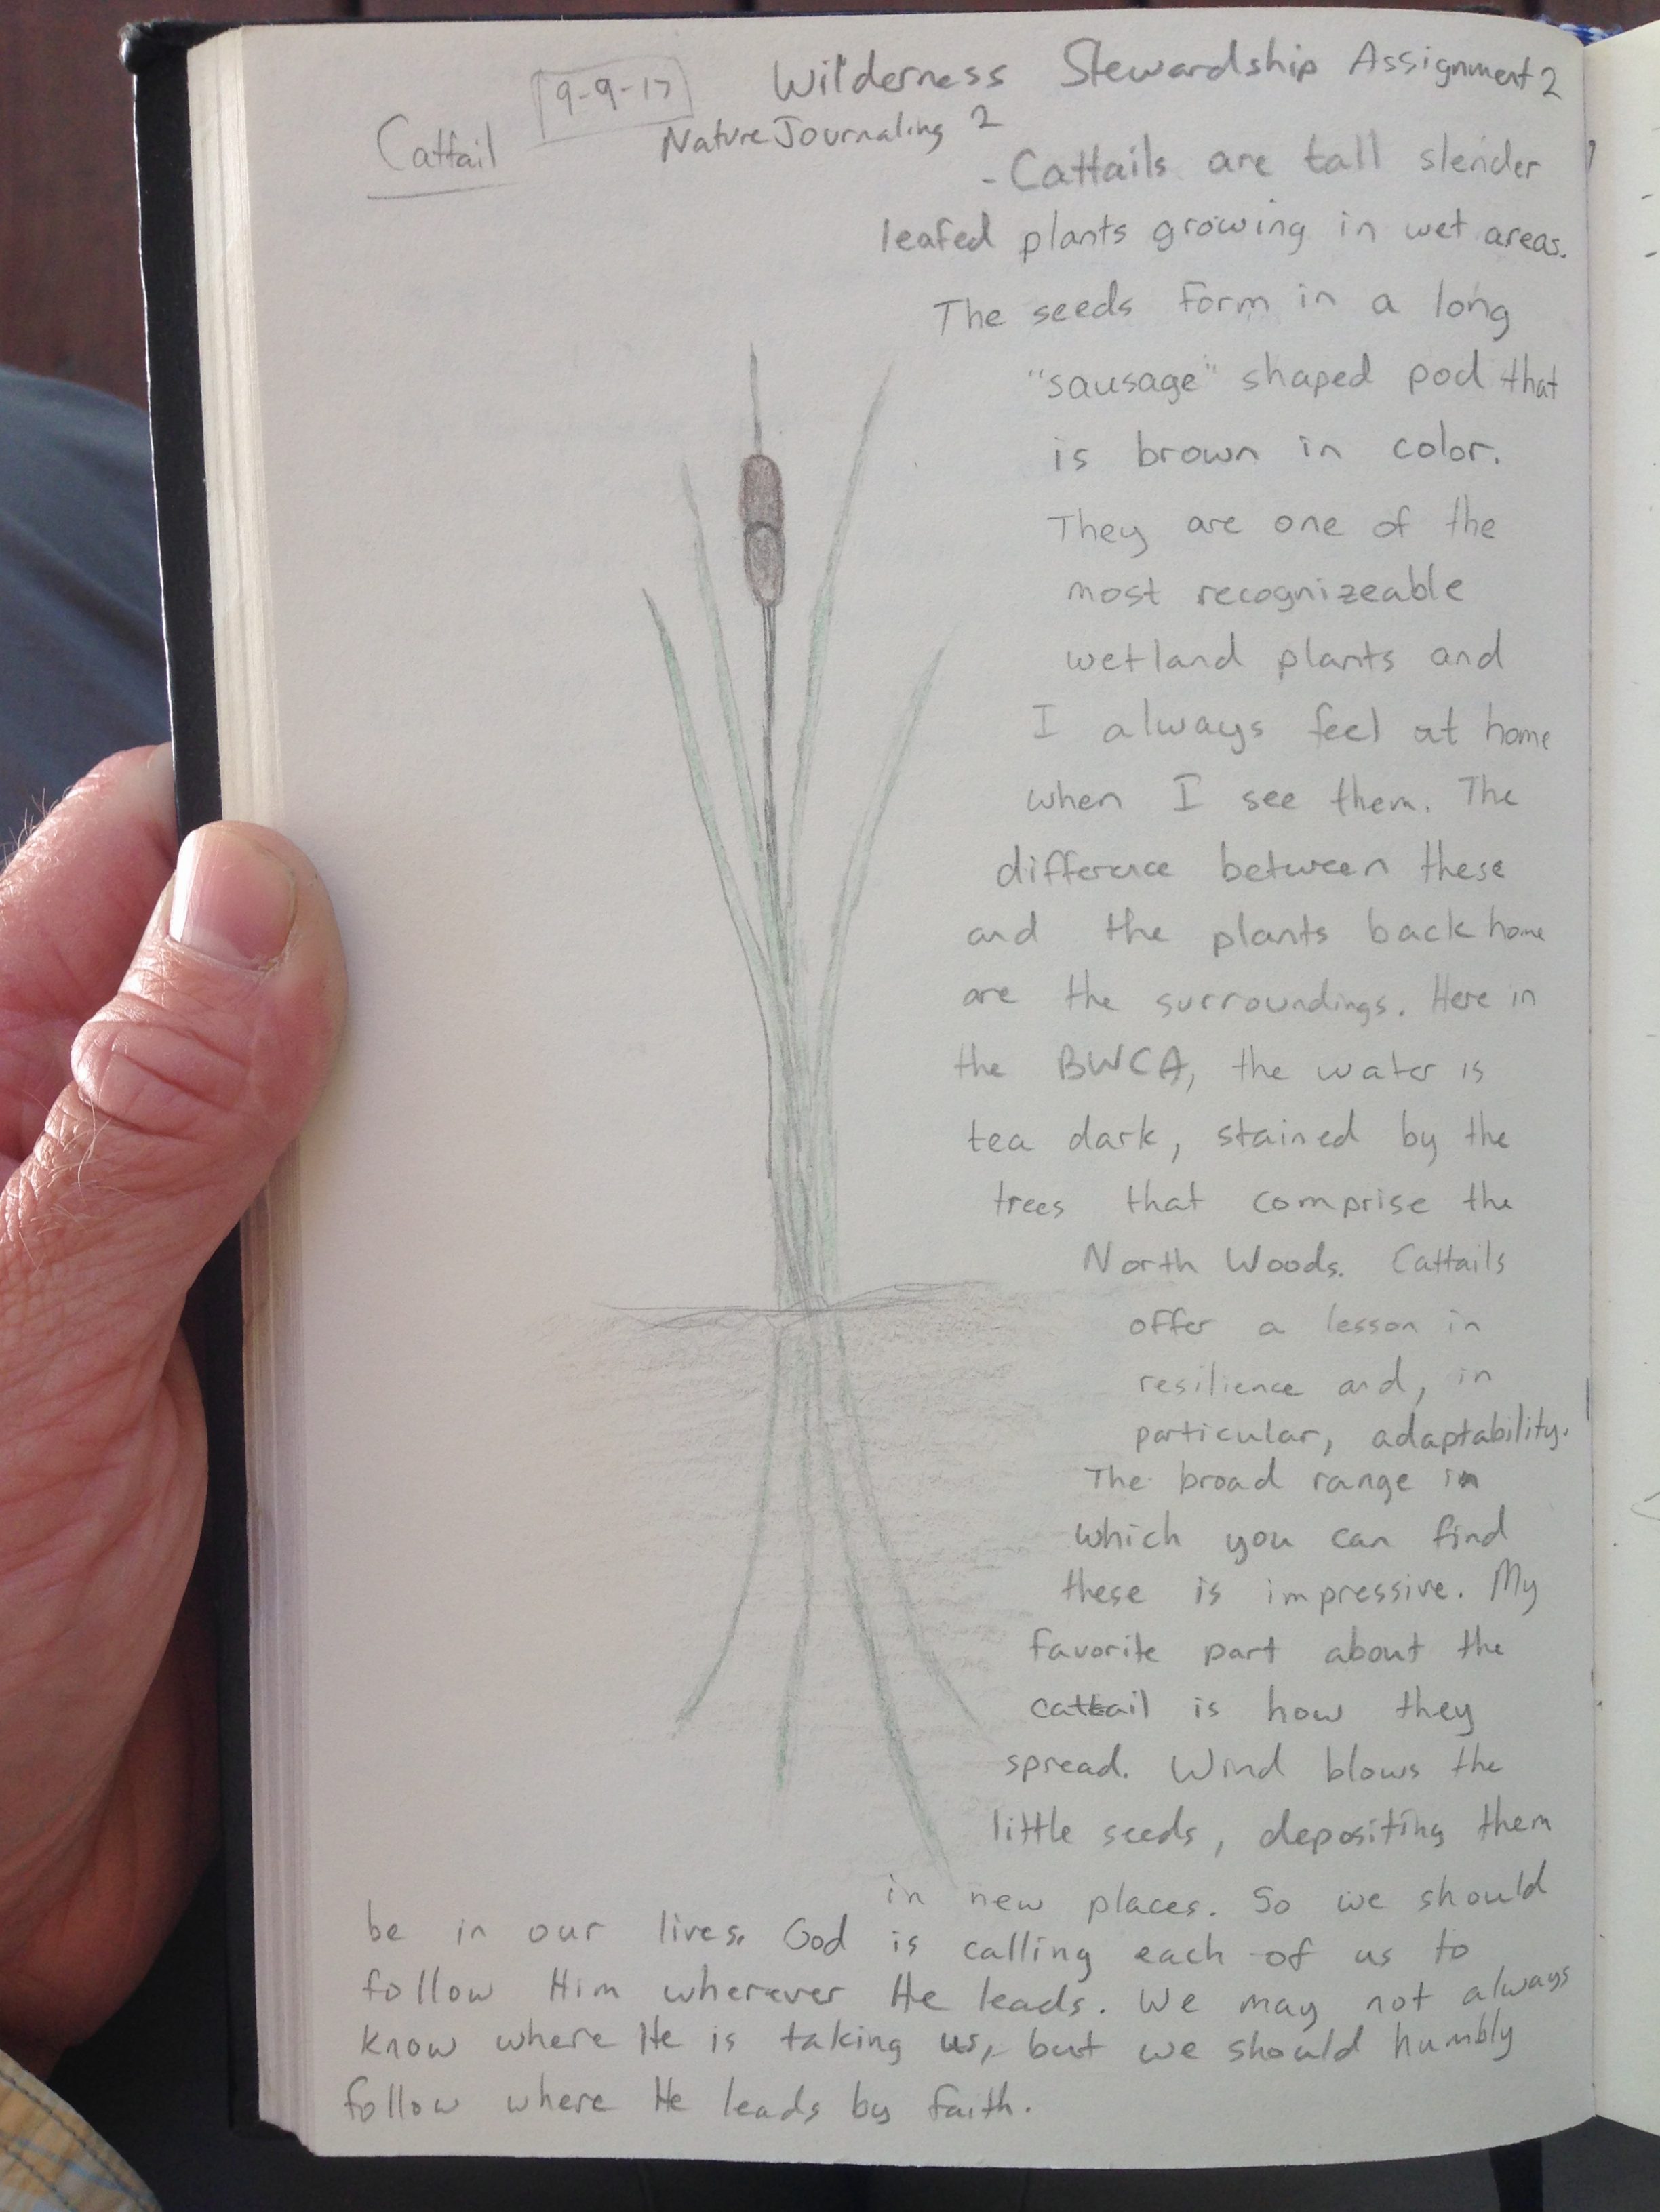 9-9-17
Wilderness Stewardship Assignment 2
Cattail
Nature Journaling 2
- Cattails are tall slender
leafed plants growing in wet areas.
The seeds form in a long
"sausage" shaped pod that
is brown in color.
They are one of the
most recognizeable
wetland plants and
I always feel at home
when I see them. The
difference between these
and the plants back home
are the surroundings. Here in
the BWCA, the water is
tea dark, stained by the
trees that comprise the
North Woods. Cattails
offer a lesson in
resilience and, in
particular, adaptability.
The broad range in
which you can find
these is impressive. My
favorite part about the
cattail is how they
spread. Wind blows the
little seeds, depositing them
in new places. So we should
be in our lives. God is calling each of us to
follow Him wherever He leads. We may not always
know where He is taking us, but we should humbly
follow where He leads by faith.